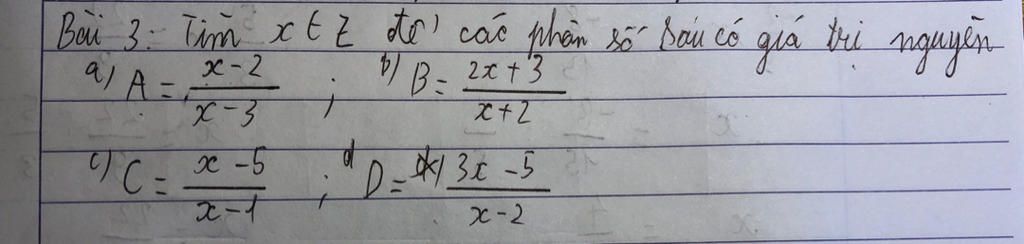 Bài 3: Tìm x ∈ Z để các phân số sau có giá trị nguyên
a) A = (x - 2)/(x - 3) ; b) B = (2x + 3)/(x + 2)
c) C = (x - 5)/(x - 1) ; d D = (3x - 5)/(x - 2)